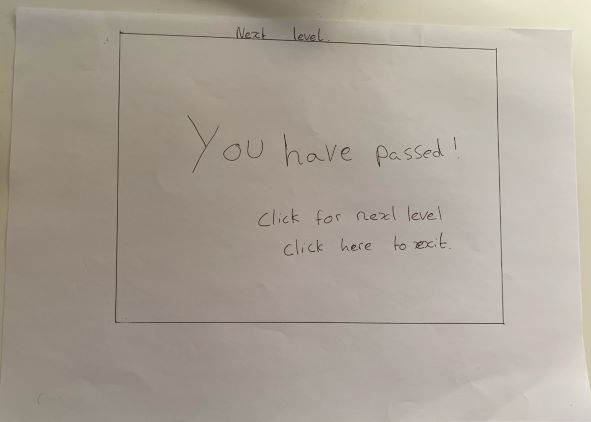 Next level.
You have passed!
Click for next level
click here to exit.